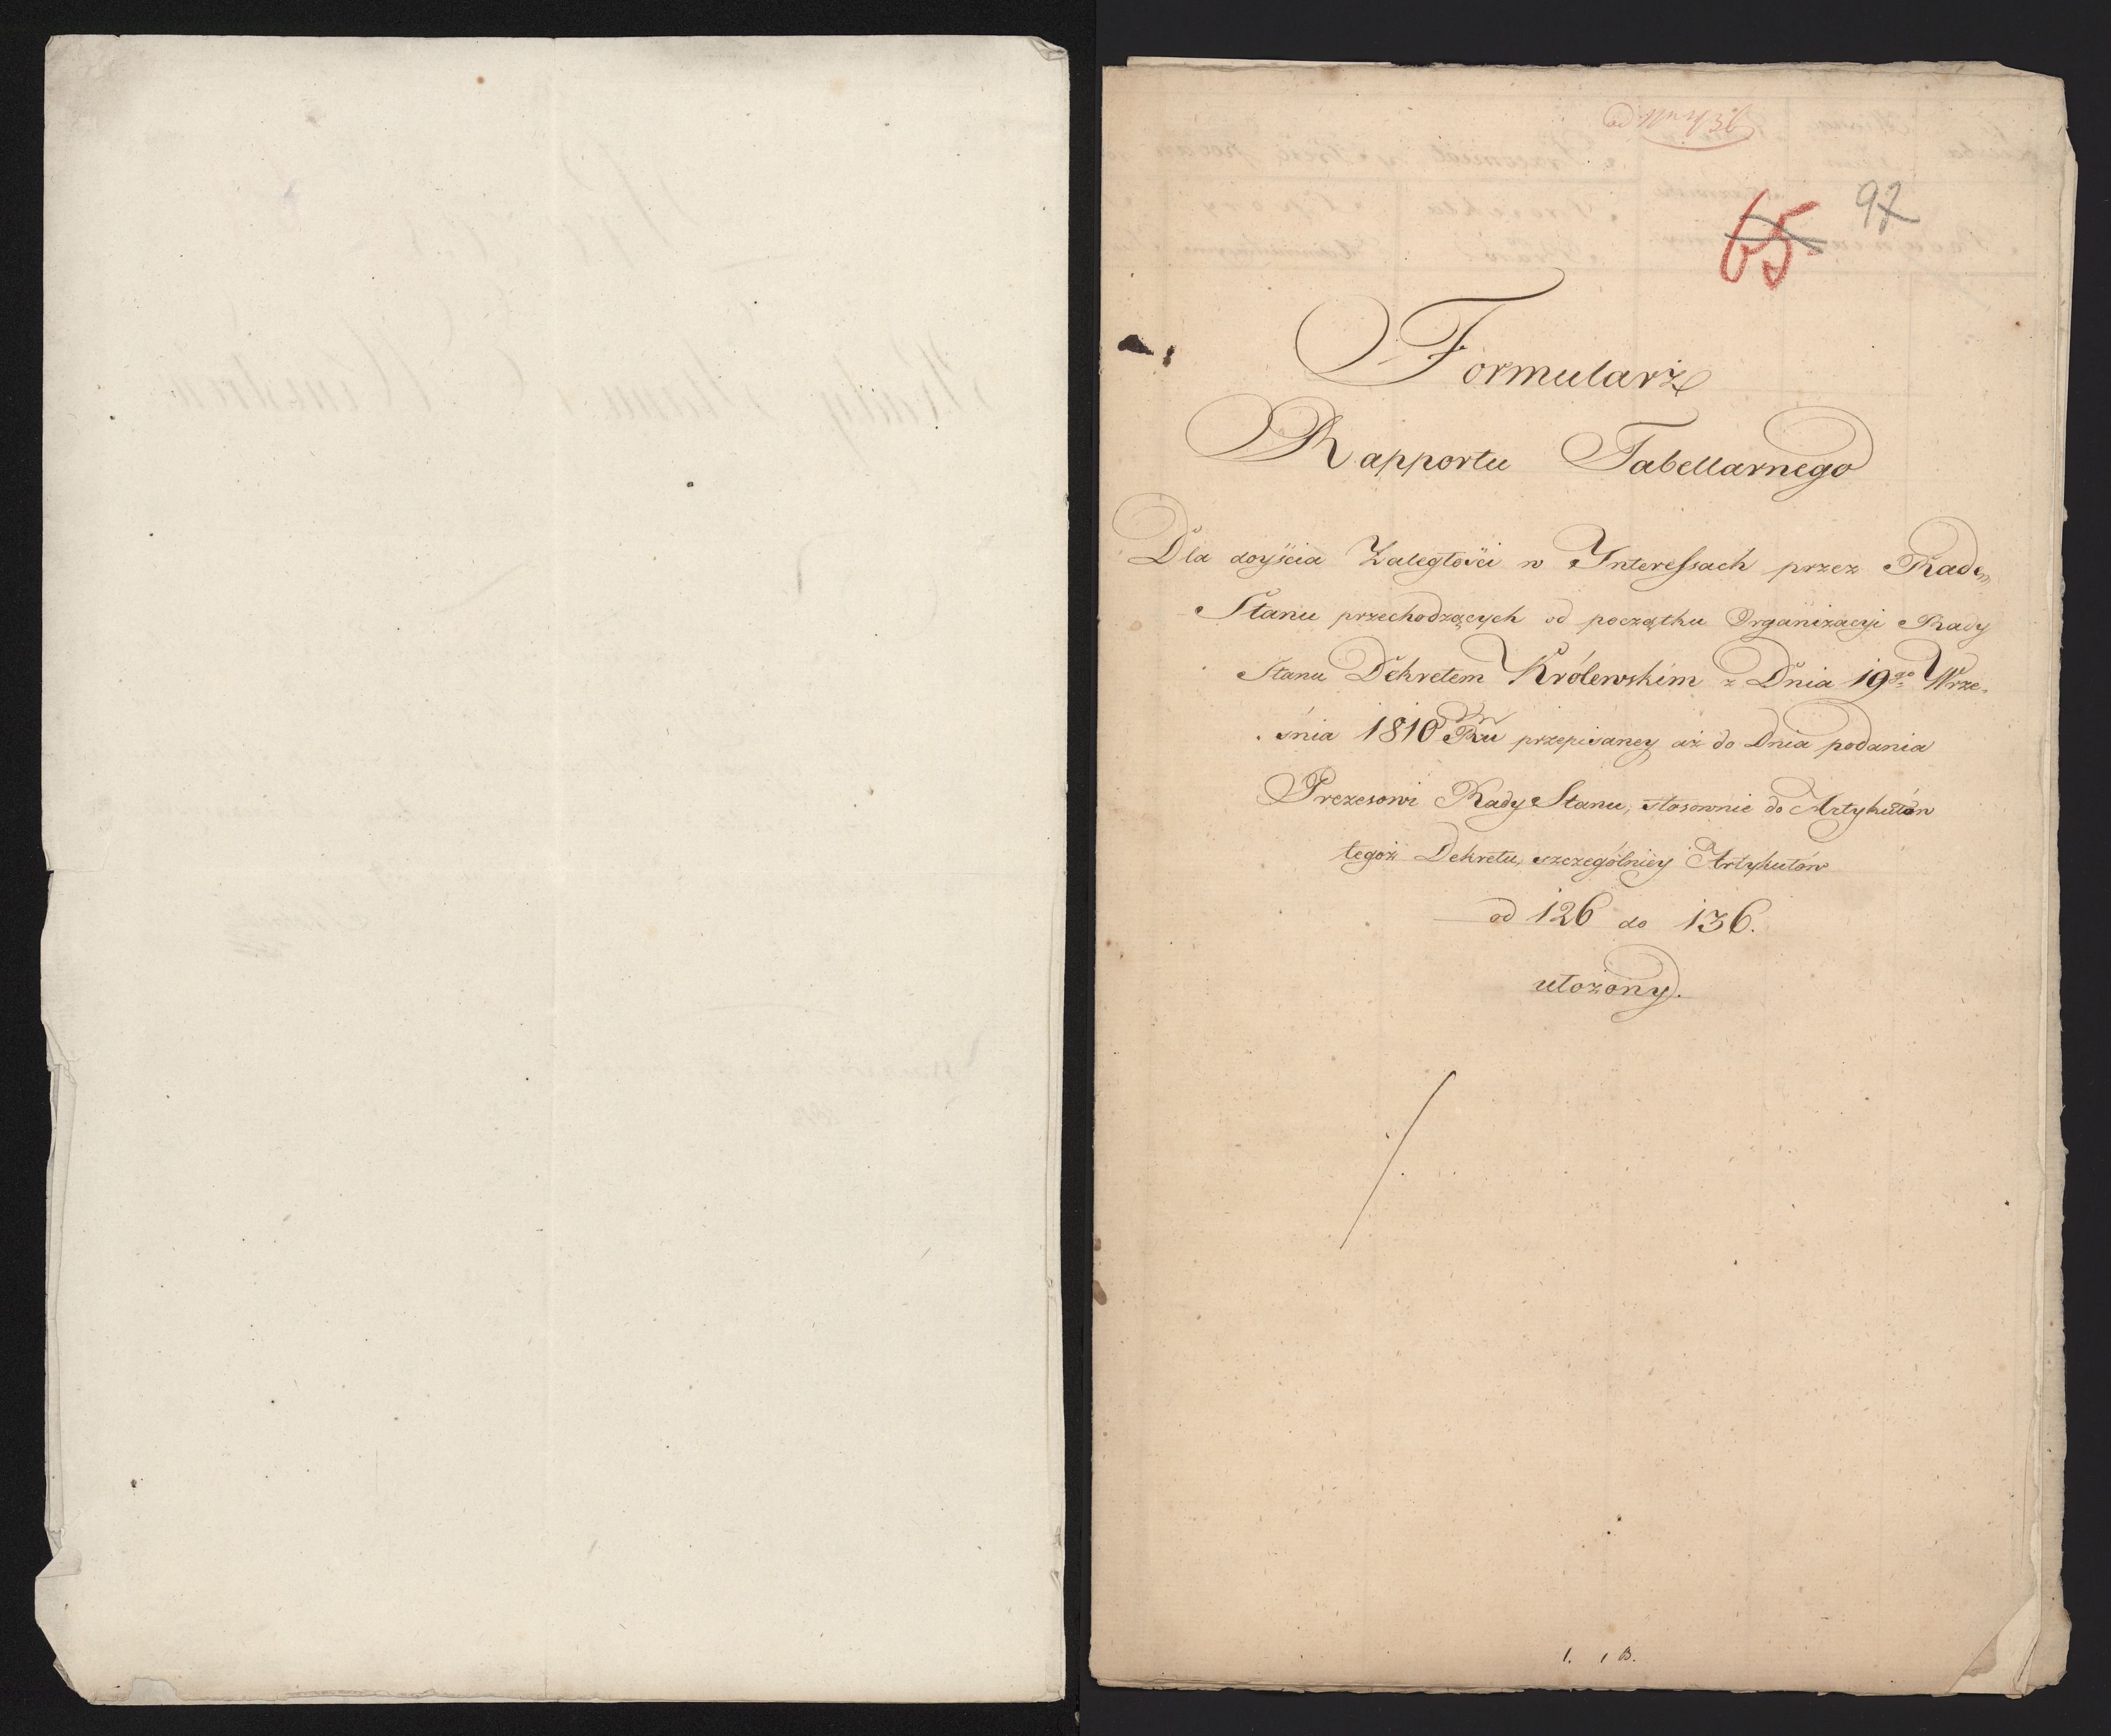 97
65
Formularz
Rapportu Tabellarnego
Dla doyścia Zaległości w Interessach przez Radę
Stanu przechodzących od początku Organizacyi Rady
Stanu Dekretem Królewskim z Dnia 19go Wrze-
śnia 1810 Ru przepisaney aż do Dnia podania
Prezesowi Rady Stanu, stosownie do Artykułów
tegoż Dekretu, szczególniey Artykułów
od 126 do 136.
ułożony.